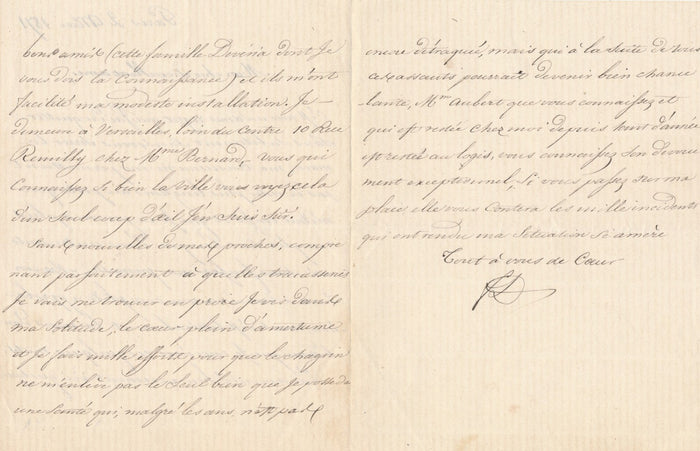 bons amis (cette famille Devéria dont Je
vous dois la Connaissance) et ils m'ont
facilité ma modeste installation. Je
demeure à Versailles, loin du Centre 10 Rue
Remilly chez Mme Bernard, vous qui
Connaissez si bien la ville vous voyez cela
d'un seul coup d'œil J'en Suis Sûr.
Sans nouvelles de mes proches, compre
nant parfaitement à quelles tracasseries
Je vais me trouver en proie Je vis dans
ma Solitude, le cœur plein d'amertume
et Je fais mille efforts pour que le chagrin
ne m'enlève pas le Seul bien que Je possède
une Santé qui, malgré les ans, n'est pas
encore détraquée, mais qui à la Suite de tous
ces assauts pourrait devenir bien chance
lante, Mme Aubert que vous connaissez et
qui est restée chez moi depuis tant d'années
est restée au logis, vous connaissez Son dévoue
ment exceptionnel, Si vous passez sur ma
place elle vous Contera les mille incidents
qui ont rendu ma Situation Si amère
Tout à vous de Cœur